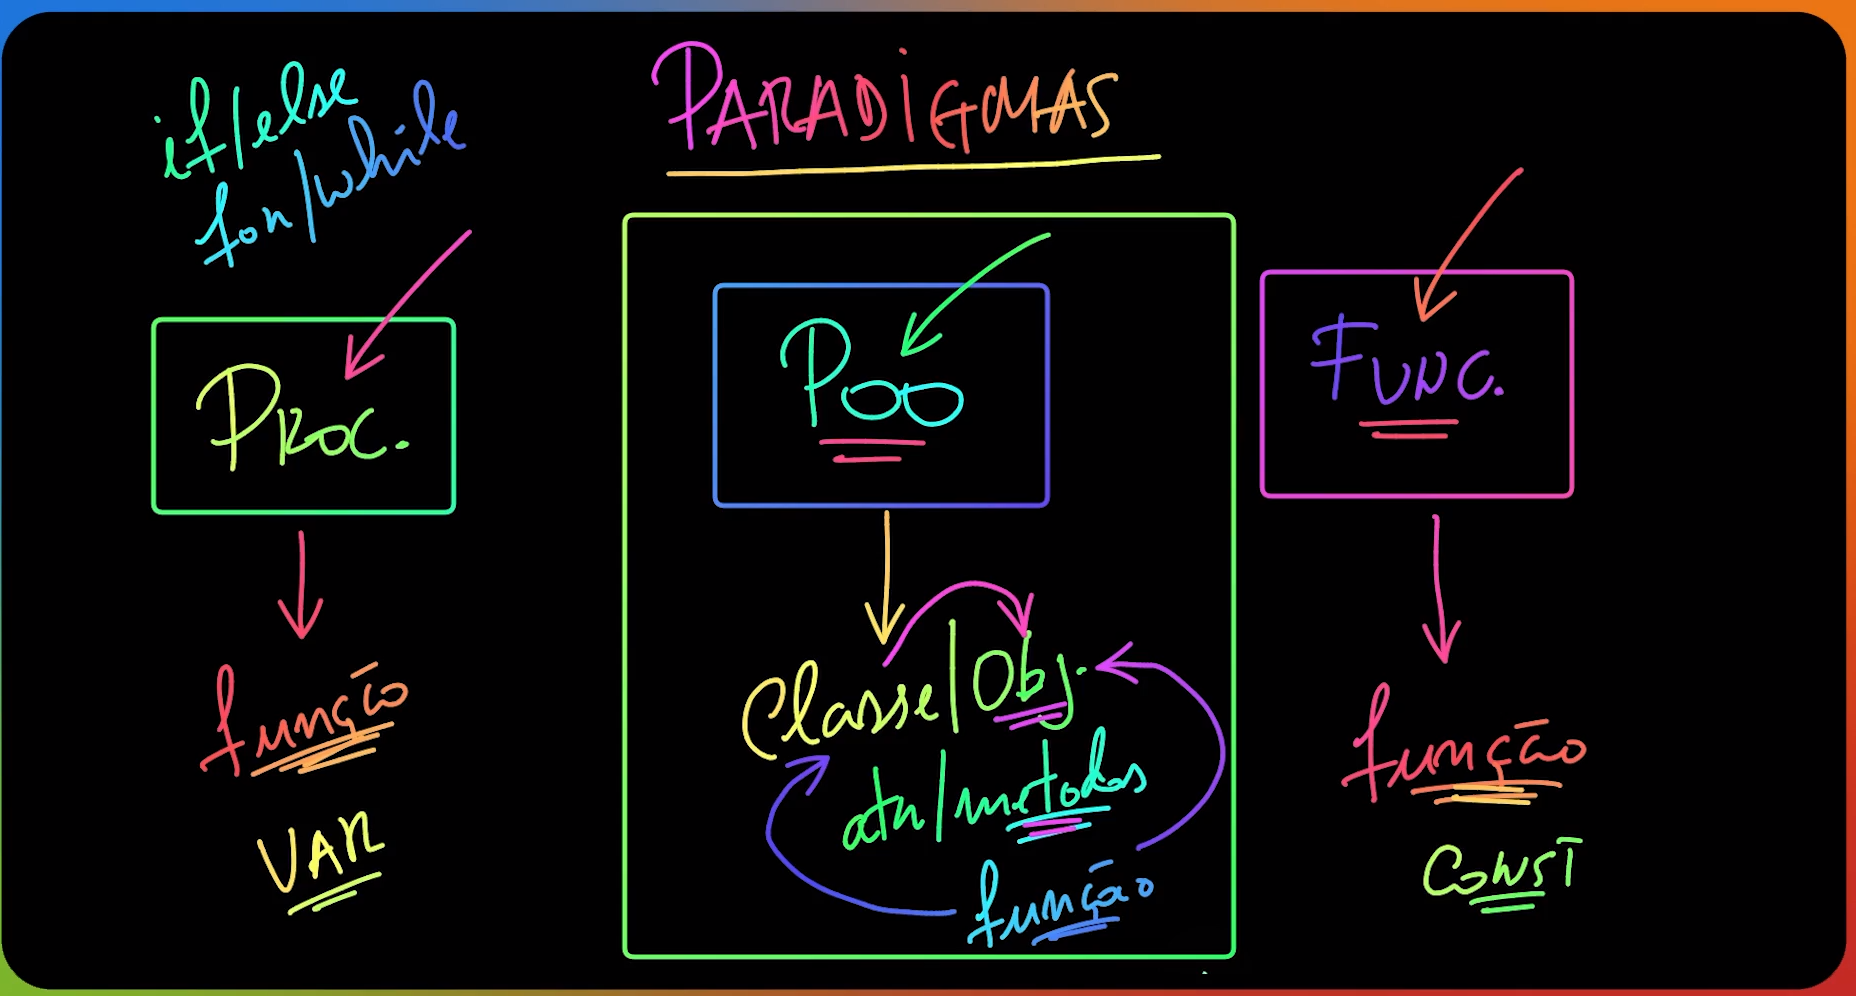 PARADIGMAS
if/else
for/while
PROC.
função
VAR
POO
Classe/Obj.
atr/metodos
função
FUNC.
função
CONST